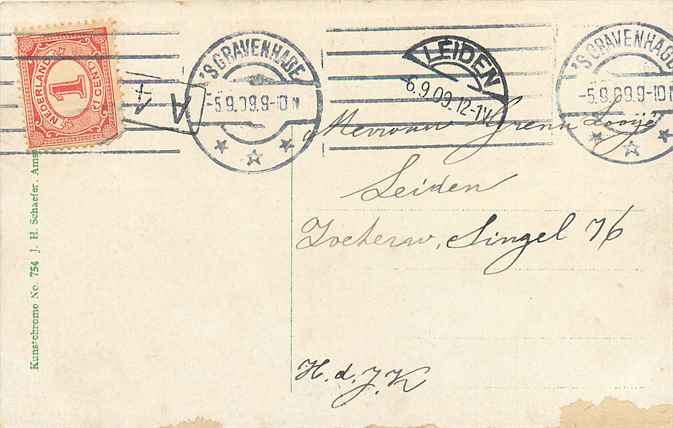 NEDERLAND
1
1 CENT
'S GRAVENHAGE
-5.9.09.9-10N
LEIDEN
-6.9.09.12-1V.
'S GRAVENHAGE
-5.9.09.9-10N
A
Mevrouw
Leiden
Singel 76
H. d. J. K
Kunstchrome No. 754 J. H. Schaefer, Ams